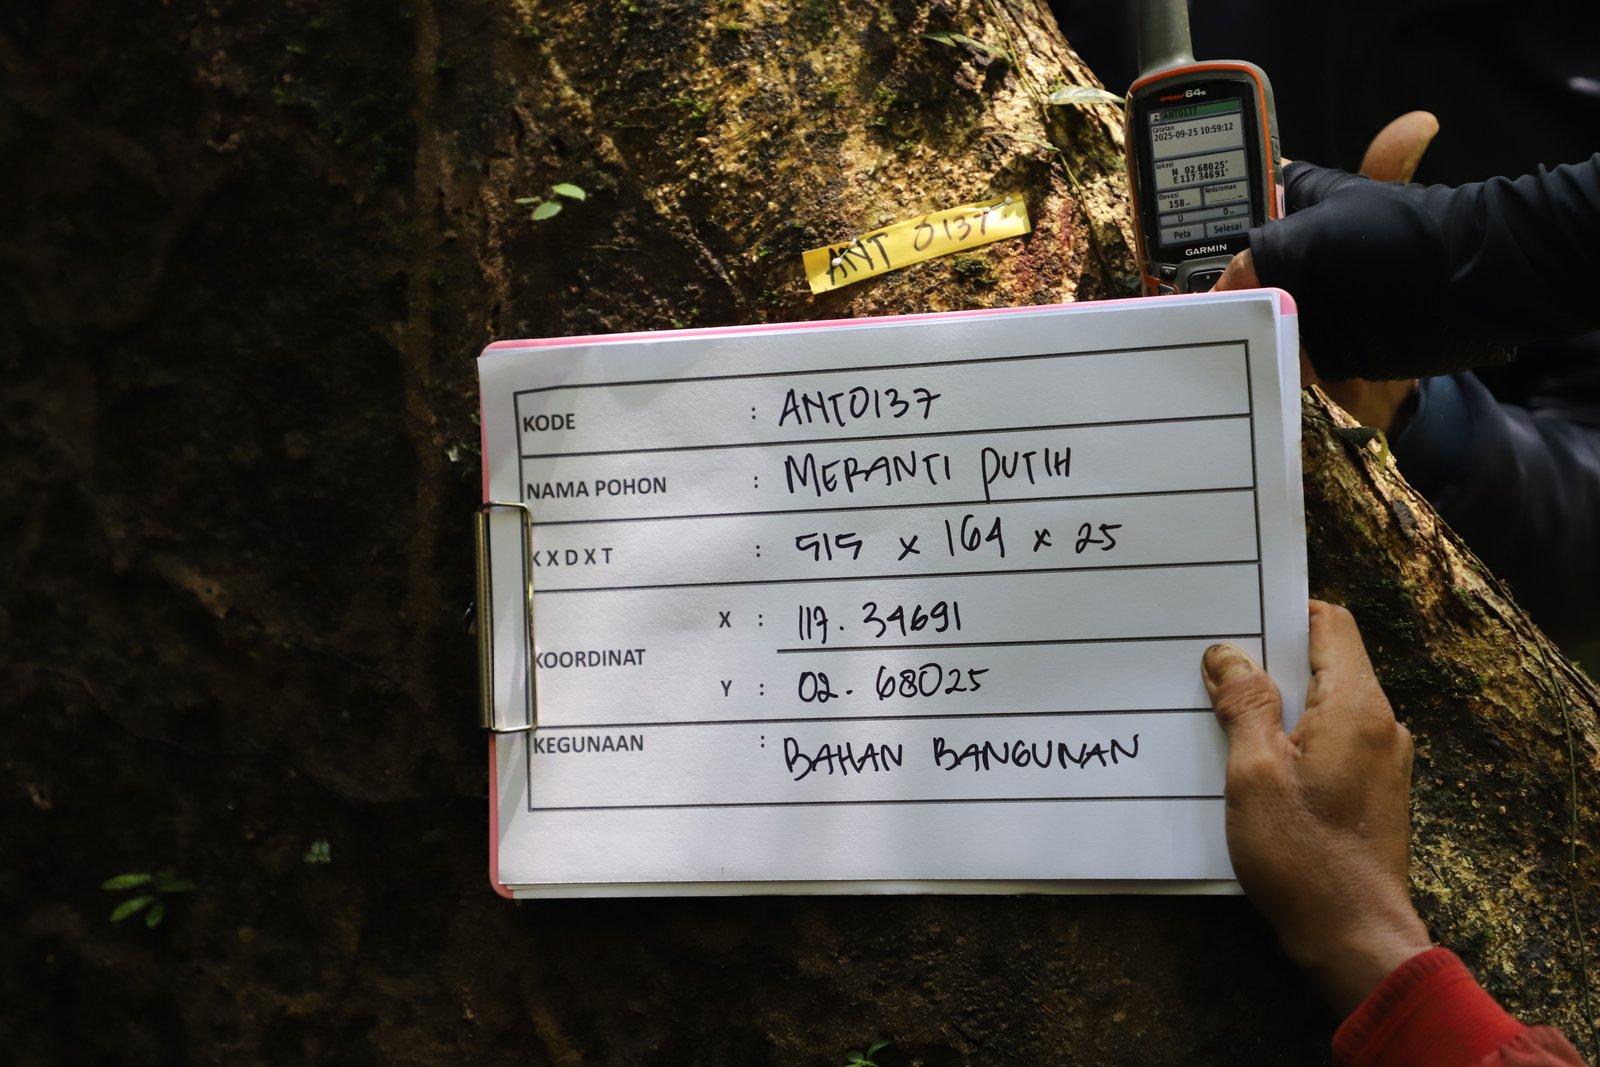 GPSMAP 64s
ANT0137
Catatan
2025-09-25 10:59:12
Lokasi
N 02.68025°
E 117.34691°
Elevasi Kedalaman
158m
U 0m
Peta Selesai
GARMIN
ANT 0137
KODE : ANT0137
NAMA POHON : MERANTI PUTIH
K X D X T : 515 x 164 x 25
KOORDINAT X : 117.34691
Y : 02.68025
KEGUNAAN : BAHAN BANGUNAN